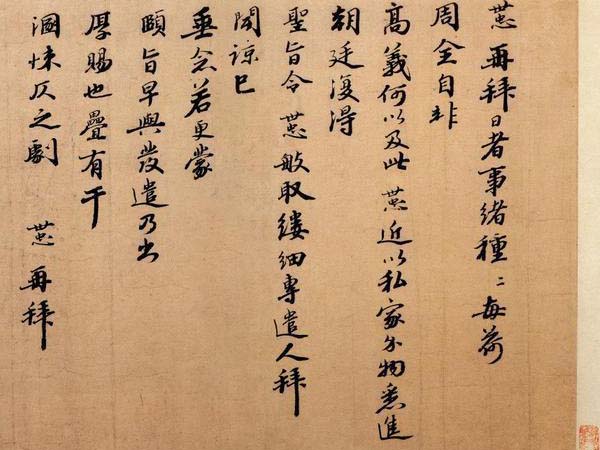 再拜日者事緒種種每荷
周全自非
高義何以及此 近以私家尔物悉進
朝廷復得
聖旨令 取縷細專遣人拜
聞諒已
垂念若更蒙
頤旨早與發遣乃出
厚賜也疊有干
溷悚仄之劇 再拜